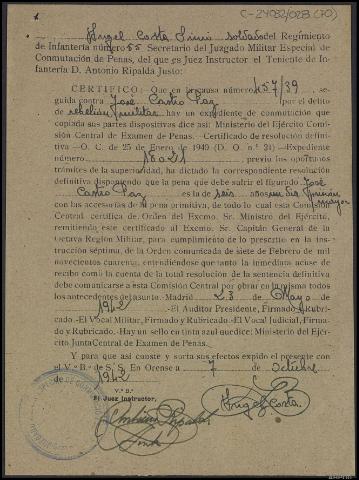 C-24082/028 (70)
Angel Costa Simó soldado del Regimiento
de Infantería número 55 Secretario del Juzgado Militar Especial de
Conmutación de Penas, del que es Juez Instructor el Teniente de In-
fantería D. Antonio Ripalda Justo:
CERTIFICO: Que en la causa número 457/39, se-
guida contra José Castro Paz por el delito
de rebelión militar hay un expediente de conmutación que
copiada sus partes dispositivas dice así: Ministerio del Ejército Comi-
sión Central de Examen de Penas.—Certificado de resolución defini-
tiva —O. C. de 25 de Enero de 1940 (D. O. n.º 21).—Expediente
número previo los oportunos
trámites de la superioridad, ha dictado la correspondiente resolución
definitiva disponiendo que la pena que debe sufrir el figurado José
Castro Paz es la de seis años
con las accesorias de la pena primitiva, de todo lo cual esta Comisión
Central certifica de Orden del Excmo. Sr. Ministro del Ejército,
remitiendo este certificado al Excmo. Sr. Capitán General de la
Octava Región Militar, para cumplimiento de lo prescrito en la ins-
trucción séptima, de la Orden comunicada de siete de Febrero de mil
novecientos cuarenta, entendiéndose que tanto la inmediata acuse de
recibo como la cuenta de la total resolución de la sentencia definitiva
debe comunicarse a esta Comisión Central por obrar en la misma todos
los antecedentes del asunto.—Madrid 23 de Mayo de
1942 —El Auditor Presidente, Firmado y Rubri-
cado.-El Vocal Militar, Firmado y Rubricado.-El Vocal Judicial, Firma-
do y Rubricado.-Hay un sello en tinta azul que dice: Ministerio del Ejér-
cito Junta Central de Examen de Penas.
Y para que así conste y surta sus efectos expido el presente con
el V.º B.º de S. S. En Orense a 7 de Octubre
de 1942
V.º B.º
El Juez Instructor,
Antonio Ripalda
Justo
Angel Costa